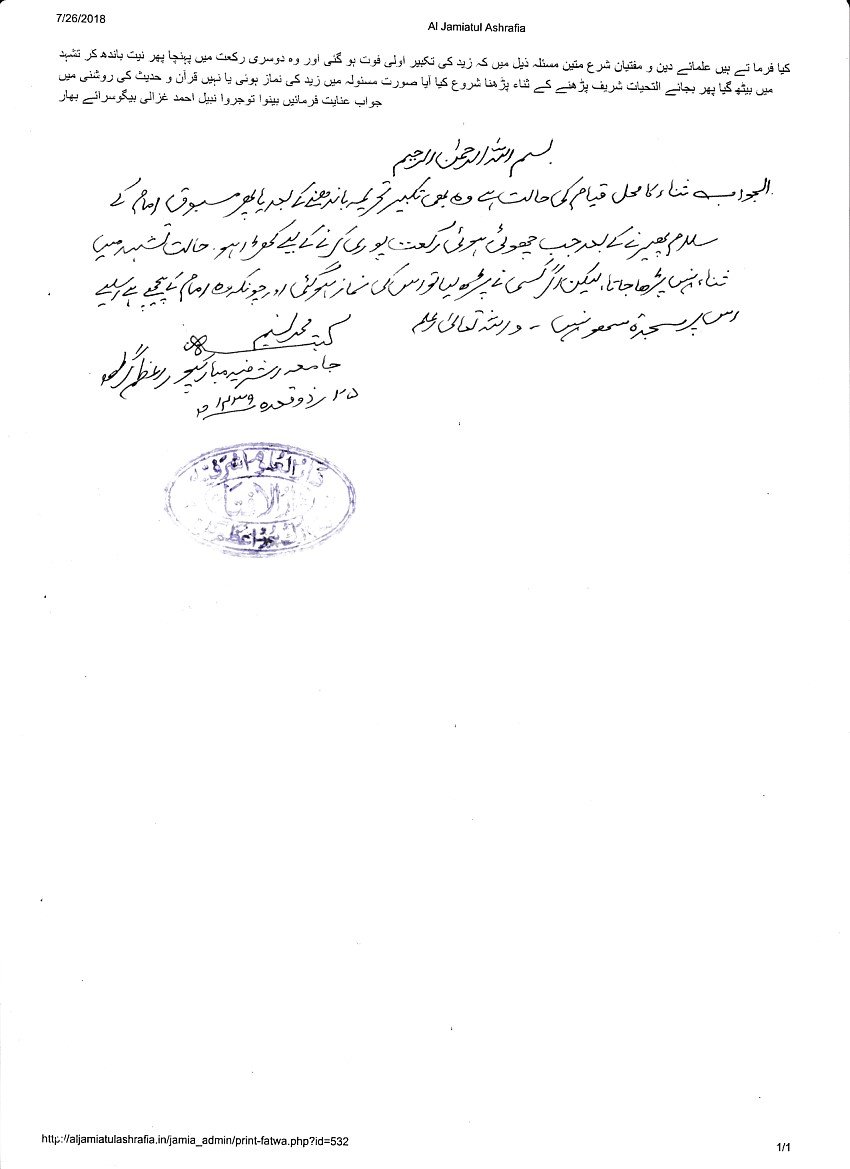 7/26/2018
Al Jamiatul Ashrafia
کیا فرما تے ہیں علمائے دین و مفتیان شرع متین مسئلہ ذیل میں کہ زید کی تکبیر اولی فوت ہو گئی اور وہ دوسری رکعت میں پہنچا پھر نیت باندھ کر تشہد
میں بیٹھ گیا پھر بجائے التحیات شریف پڑھنے کے ثناء پڑھنا شروع کیا آیا صورت مسئولہ میں زید کی نماز ہوئی یا نہیں قرآن و حدیث کی روشنی میں
جواب عنایت فرمائیں بینوا توجروا نبیل احمد غزالی بیگوسرائے بہار
بسم اللہ الرحمٰن الرحیم
الجواب ثناء کا محل قیام کی حالت ہے وہ بھی تکبیر تحریمہ باندھنے کے بعد یا پھر مسبوق امام کے
سلام پھیرنے کے بعد جب چھوٹی ہوئی رکعت پوری کرنے کے لیے کھڑا ہو۔ حالت تشہد میں
ثناء نہیں پڑھا جاتا، لیکن اگر کسی نے پڑھ لیا تو اس کی نماز ہو گئی اور چونکہ وہ امام کے پیچھے ہے اس لیے
اس پر سجدۂ سہو نہیں ۔ واللہ تعالیٰ اعلم
کتبہ محمد نسیم
جامعہ اشرفیہ مبارکپور اعظم گڑھ
۲۵ ذوقعدہ ۱۴۳۹ھ
دار العلوم اشرفیہ
دار الافتاء
http://aljamiatulashrafia.in/jamia_admin/print-fatwa.php?id=532
1/1